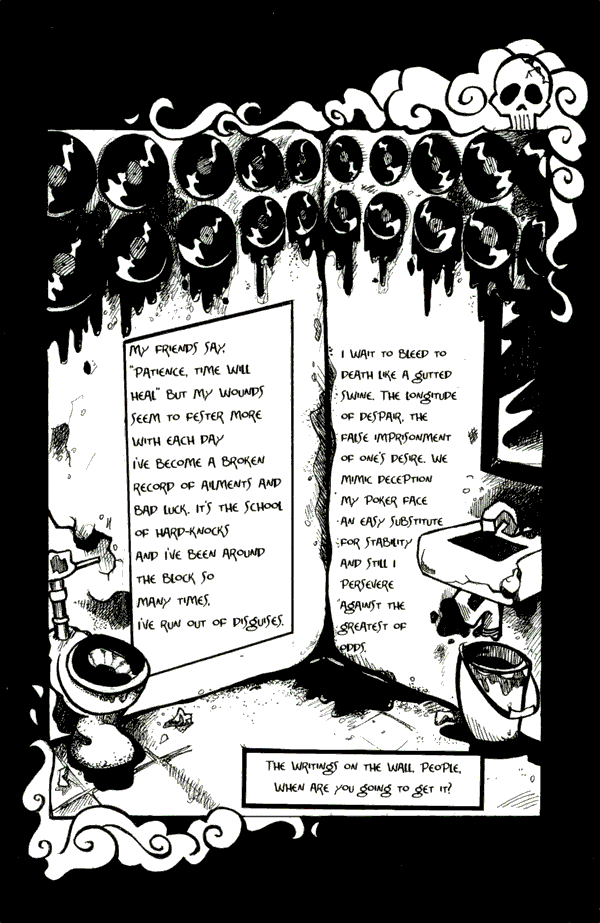 MY FRIENDS SAY,
"PATIENCE, TIME WILL
HEAL" BUT MY WOUNDS
SEEM TO FESTER MORE
WITH EACH DAY
I'VE BECOME A BROKEN
RECORD OF AILMENTS AND
BAD LUCK. IT'S THE SCHOOL
OF HARD-KNOCKS
AND I'VE BEEN AROUND
THE BLOCK SO
MANY TIMES,
I'VE RUN OUT OF DISGUISES.
I WAIT TO BLEED TO
DEATH LIKE A GUTTED
SWINE. THE LONGITUDE
OF DESPAIR, THE
FALSE IMPRISONMENT
OF ONE'S DESIRE. WE
MIMIC DECEPTION
MY POKER FACE
AN EASY SUBSTITUTE
FOR STABILITY
AND STILL I
PERSEVERE
AGAINST THE
GREATEST OF
ODDS.
THE WRITINGS ON THE WALL, PEOPLE,
WHEN ARE YOU GOING TO GET IT?